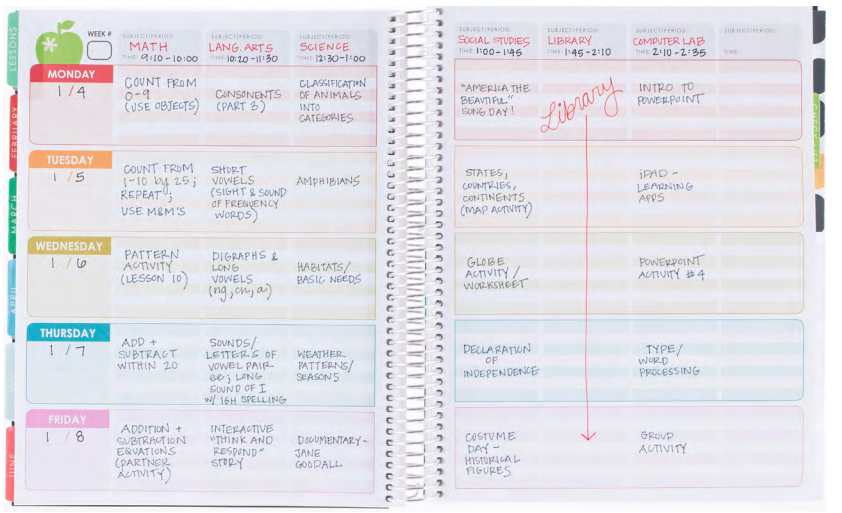 LESSONS
FEBRUARY
MARCH
APRIL
JUNE
WEEK #
SUBJECT/PERIOD:
MATH
TIME: 9:10-10:00
SUBJECT/PERIOD:
LANG. ARTS
TIME: 10:20-11:30
SUBJECT/PERIOD:
SCIENCE
TIME: 12:30-1:00
SUBJECT/PERIOD:
SOCIAL STUDIES
TIME: 1:00-1:45
SUBJECT/PERIOD:
LIBRARY
TIME: 1:45-2:10
SUBJECT/PERIOD:
COMPUTER LAB
TIME: 2:10-2:35
SUBJECT/PERIOD:
TIME:
MONDAY
1 / 4
COUNT FROM
0-9
(USE OBJECTS)
CONSONENTS
(PART B)
CLASSIFICATION
OF ANIMALS
INTO
CATEGORIES
"AMERICA THE
BEAUTIFUL"
SONG DAY!
Library
INTRO TO
POWERPOINT
TUESDAY
1 / 5
COUNT FROM
1-10 by 25;
REPEAT;
USE M&M'S
SHORT
VOWELS
(SIGHT & SOUND
OF FREQUENCY
WORDS)
AMPHIBIANS
STATES,
COUNTRIES,
CONTINENTS
(MAP ACTIVITY)
iPAD -
LEARNING
APPS
WEDNESDAY
1 / 6
PATTERN
ACTIVITY
(LESSON 10)
DIGRAPHS &
LONG
VOWELS
(ng, ch, a)
HABITATS/
BASIC NEEDS
GLOBE
ACTIVITY/
WORKSHEET
POWERPOINT
ACTIVITY #4
THURSDAY
1 / 7
ADD +
SUBTRACT
WITHIN 20
SOUNDS/
LETTERS OF
VOWEL PAIR
ee; LONG
SOUND OF I
W/ IGH SPELLING
WEATHER
PATTERNS/
SEASONS
DECLARATION
OF
INDEPENDENCE
TYPE/
WORD
PROCESSING
FRIDAY
1 / 8
ADDITION +
SUBTRACTION
EQUATIONS
(PARTNER
ACTIVITY)
INTERACTIVE
"THINK AND
RESPOND"
STORY
DOCUMENTARY-
JANE
GOODALL
COSTUME
DAY -
HISTORICAL
FIGURES
GROUP
ACTIVITY